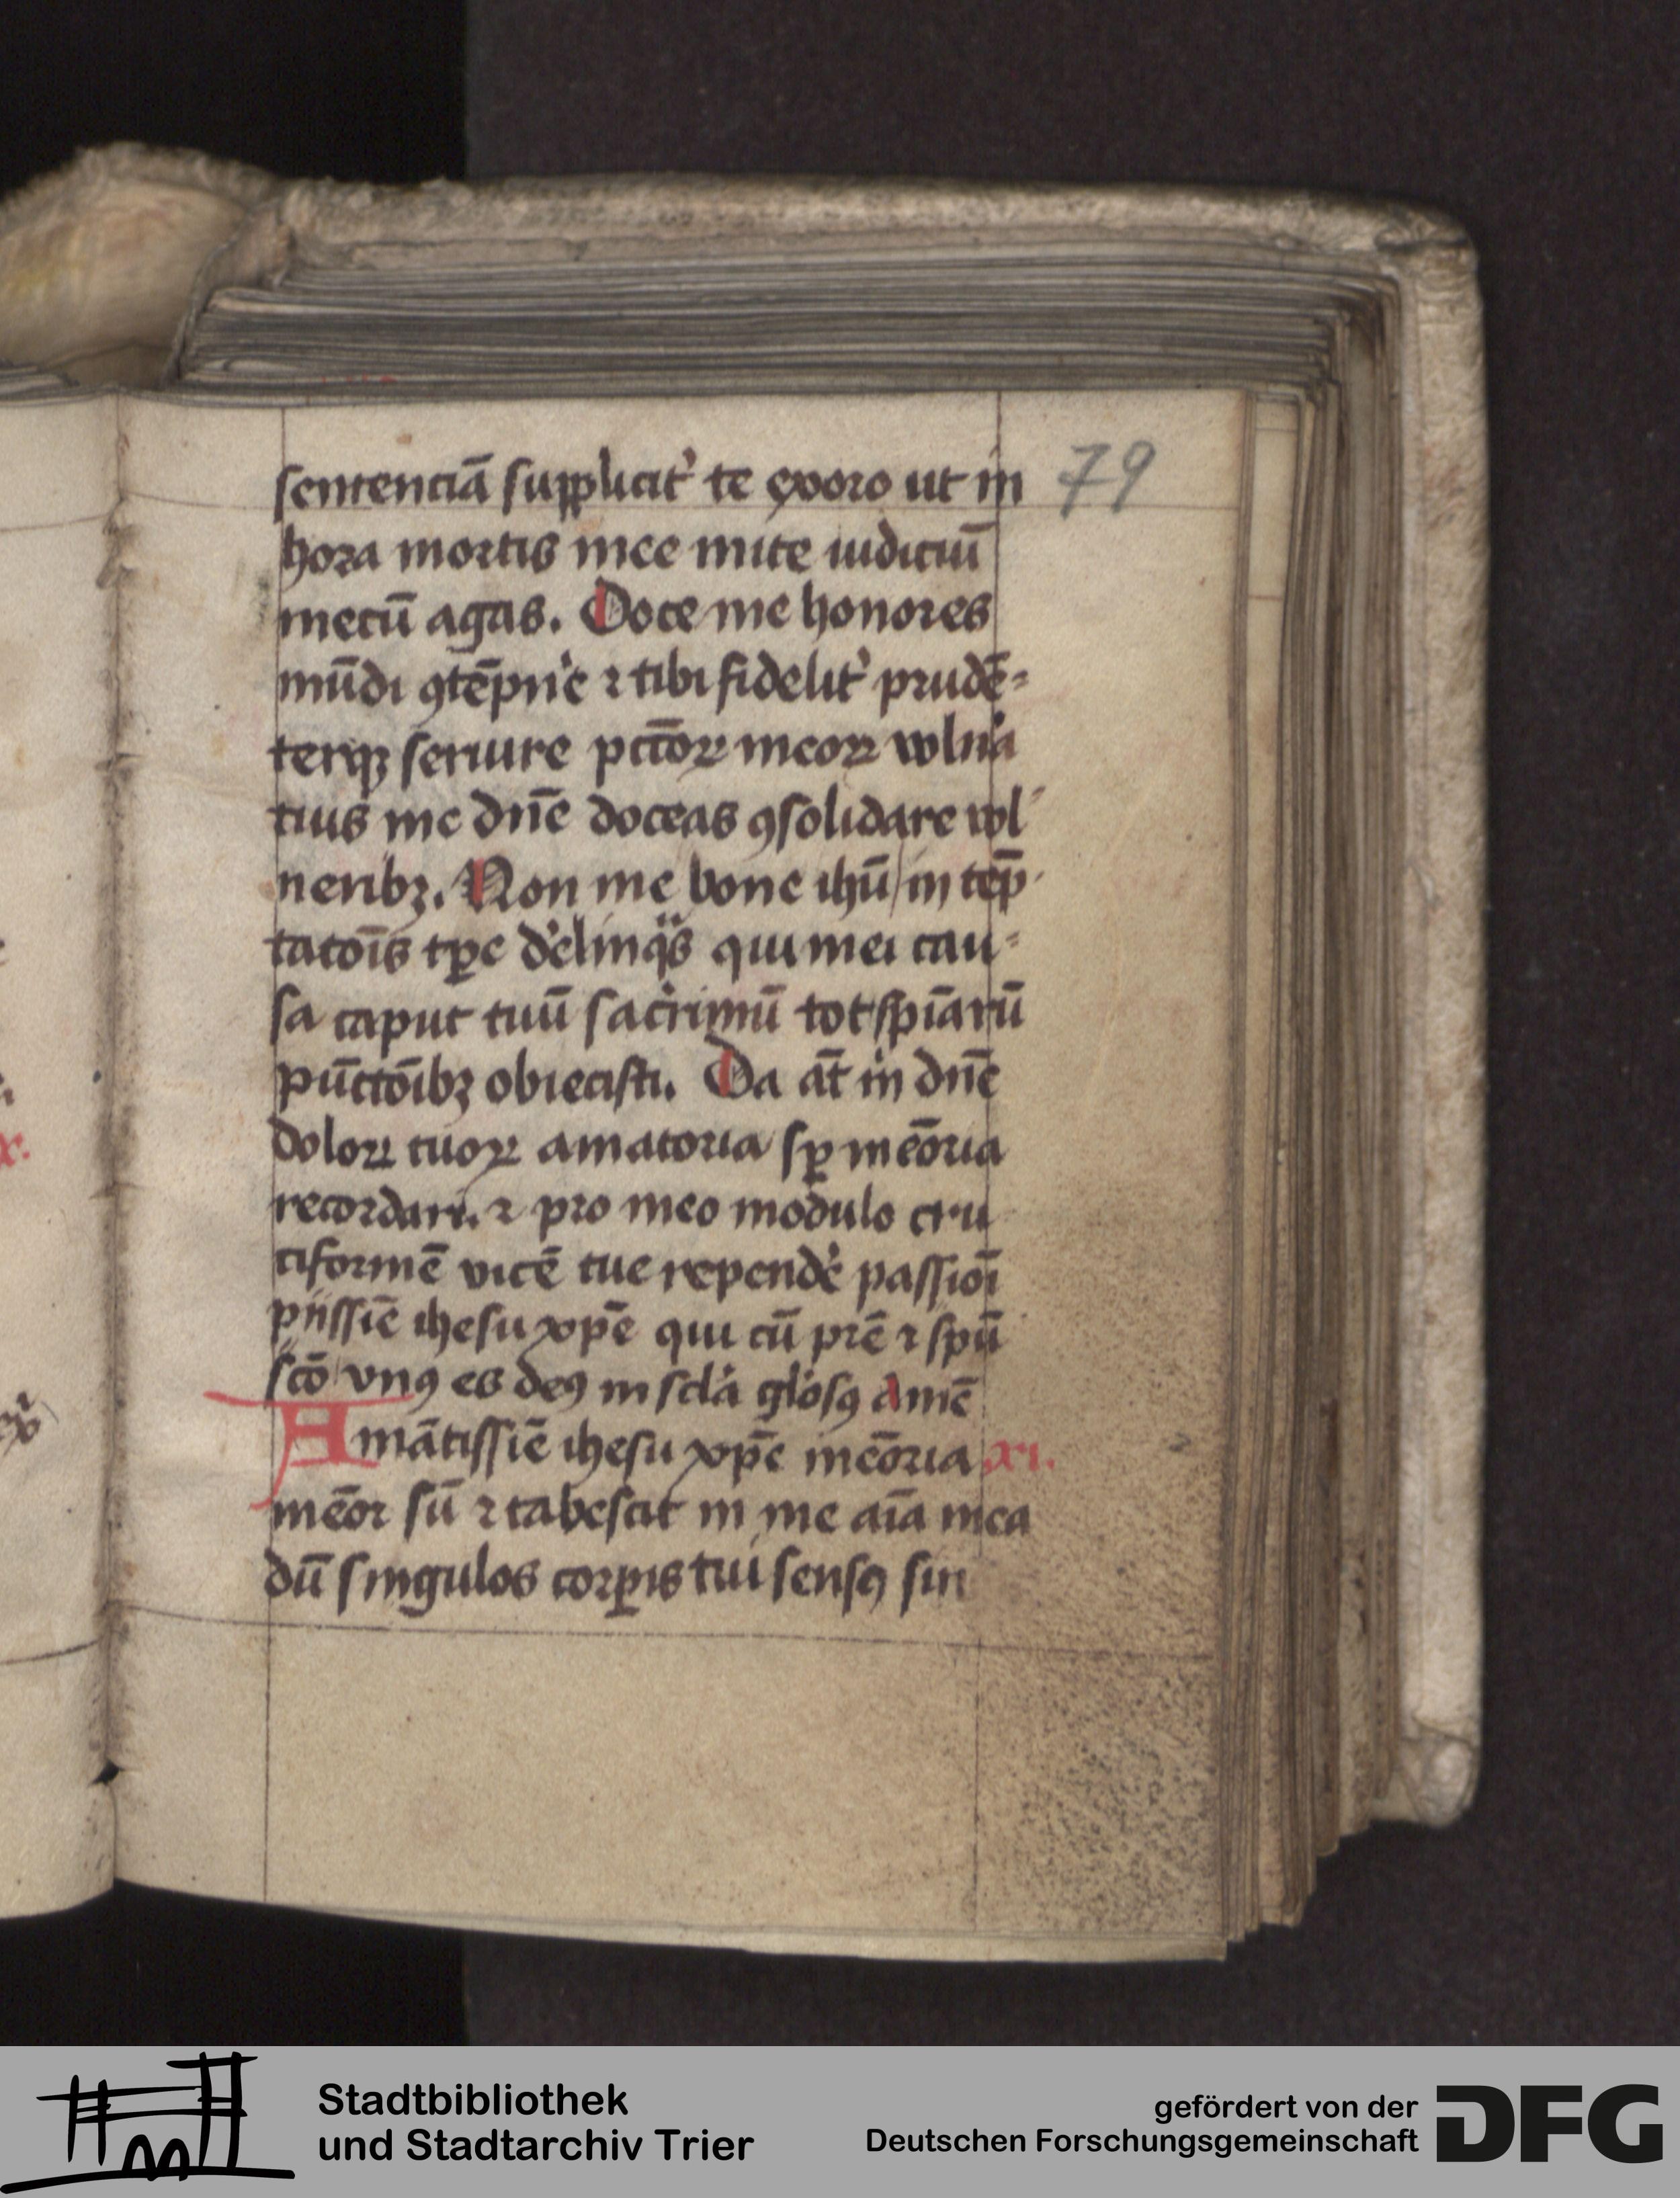 sentenciā suppliciť te exoro ut in
79
hora mortis mee mite iudiciū
mecū agas. Doce me honores
mūdi ꝯtēpn'e ⁊ tibi fideliť prudē=
terqꝫ seruire pctōꝝ meoꝝ vuln'a
tuis me dn̄e doceas ꝯsolidare vul
neribꝫ. Non me bone ihū in tēp
tatōīs tꝑe d'elinq̈s qui mei cau=
sa caput tuū sac̓rimū tot spīarū
pūctōibꝫ obiecisti. Da āt m̓ dn̄e
doloꝝ tuoꝝ amatoria sꝑ mēoria
recordari. ⁊ pro meo modulo cru
ciformē vicē tue repend'e passiōi
piissīe ihesu xp̄e qui cū prē ⁊ spū
scō vnꝯ es deꝯ in scl'a gl'osꝯ Amē
Amātissīe ihesu xp̄e mēoria xi.
mēor sū ⁊ tabescit in me aīa mea
dū singulos corꝑis tui sensꝯ sin
Stadtbibliothek
und Stadtarchiv Trier
gefördert von der
Deutschen Forschungsgemeinschaft
DFG